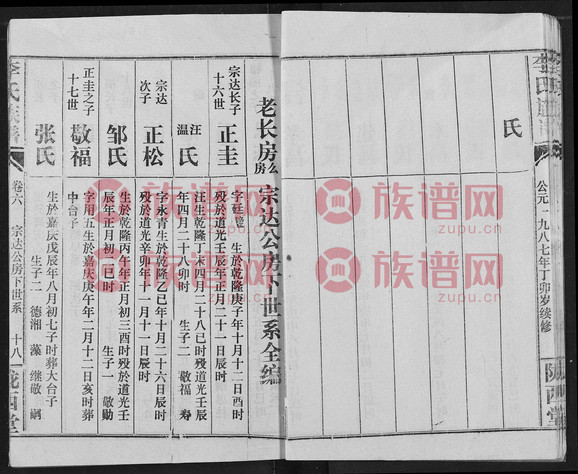 氏
公元一九八七年丁卯岁续修
陇西堂
老长房么房宗达公房下世系全编
宗达长子
十六世
正圭
字廷璧 生於乾隆庚子年十月十二日酉时
殁於道光壬辰年正月二十一日辰时
汪
温
氏
汪生乾隆丁未四月二十八巳时殁道光壬辰
年四月二十日卯时 生子二 敬福 寿
宗达
次子
正松
字永青生於乾隆乙巳年十月二十六日辰时
殁於道光辛卯年十一月十一日辰时
邹氏
生於乾隆丙午年正月初三酉时殁於道光壬
辰年正月初二巳时 生子一 敬勋
正圭之子
十七世
敬福
字用五生於嘉庆庚午年二月十二日亥时葬
中台子
张氏
生於嘉庆戊辰年八月初七子时葬大台子
生子二 德湘 藻 继敬 嗣
李氏族谱
卷六
宗达公房下世系
十八
陇西堂
族谱网
zupu.cn
族谱网
zupu.cn
族谱网
zupu.cn
族谱网
zupu.cn